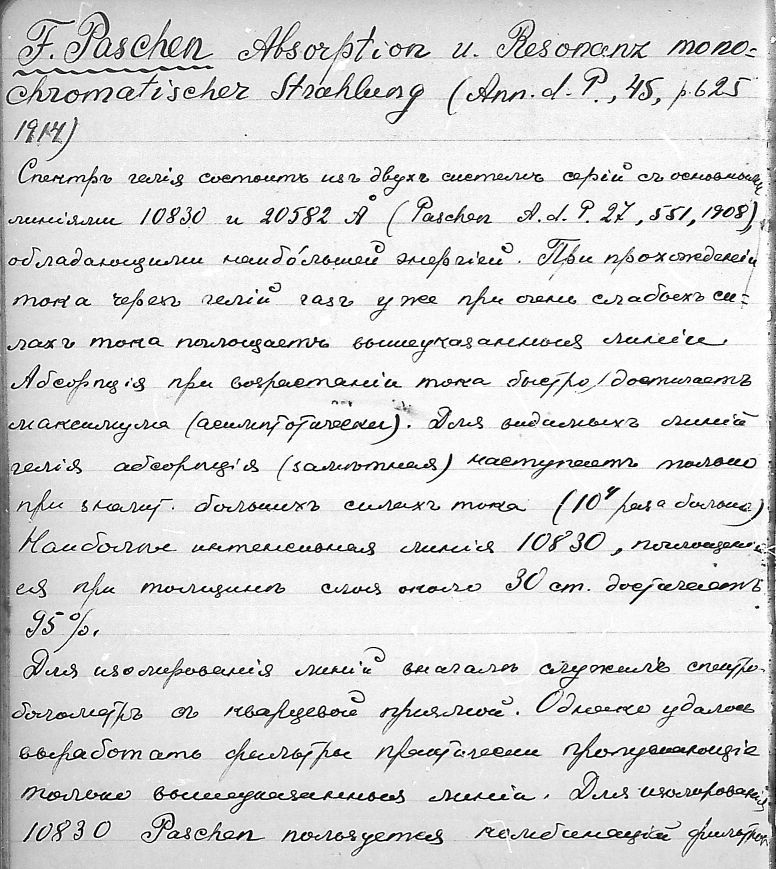 F. Paschen Absorption u. Resonanz mono=
chromatischer Strahlung (Ann. d. P., 45, p. 625
1914)
Спектръ гелія состоитъ изъ двухъ системъ серій съ основными
линіями 10830 и 20582 Å (Paschen A. d. P. 27, 551, 1908),
обладающими наибо́льшей энергіей. При прохожденіи
тока черезъ гелій газъ уже при очень слабыхъ си=
лахъ тока поглощаетъ вышеуказанныя линіи.
Абсорпція при возрастаніи тока быстро достигаетъ
максимума (асимптотически). Для видимыхъ линій
гелія абсорпція (замѣтная) наступаетъ только
при значит. большихъ силахъ тока (10⁴ раза больше)
Наиболѣе интенсивная линія 10830, поглощеніе
ея при толщинѣ слоя около 30 cm. достигаетъ
95%.
Для изолированія линій вначалѣ служилъ спектро-
болометръ съ кварцевой призмой. Однако удалось
выработать фильтры практически пропускающіе
только вышеуказанныя линіи. Для изолированія
10830 Paschen пользуется комбинаціей фильтров